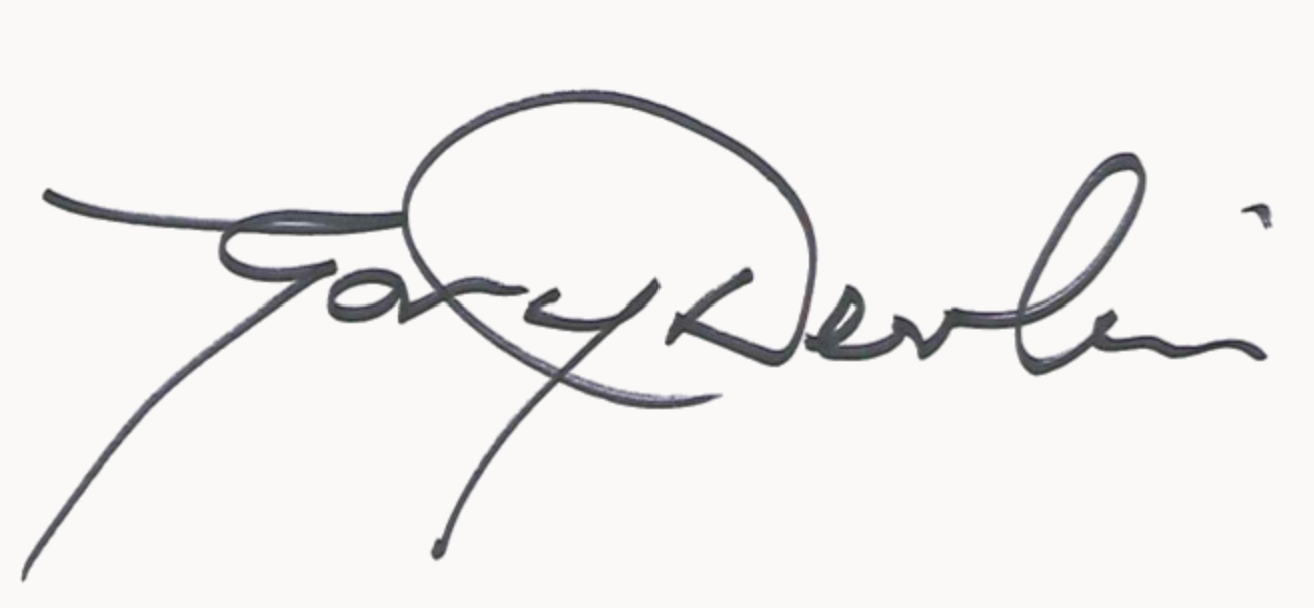 Gary Devlin